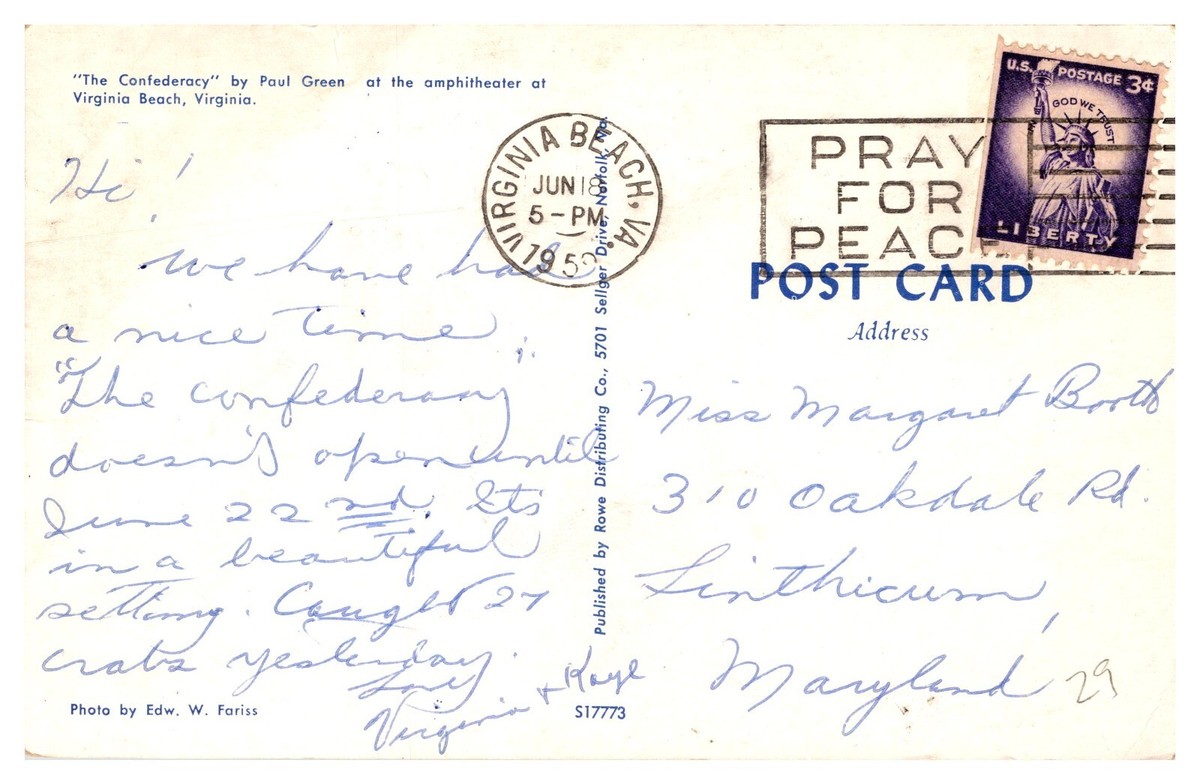 "The Confederacy" by Paul Green at the amphitheater at
Virginia Beach, Virginia.
Hi!
We have had
a nice time.
"The confederacy"
doesn't open until
June 22nd. Its
in a beautiful
setting. Caught 27
crabs yesterday.
Love
Virginia + Kaye
Photo by Edw. W. Fariss
S17773
Published by Rowe Distributing Co., 5701 Sellger Drive, Norfolk, Va.
VIRGINIA BEACH, VA.
JUN 18
5-PM
PRAY
FOR
PEACE
U.S. POSTAGE 3¢
IN GOD WE TRUST
LIBERTY
POST CARD
Address
Miss Margaret Booth
310 Oakdale Rd.
Linthicum,
Maryland
29